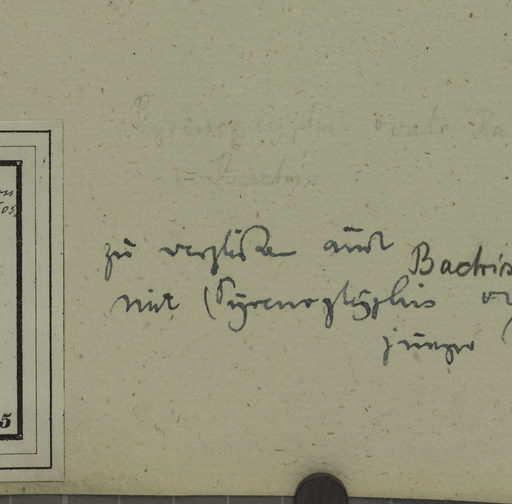 Pyrenoglyphis ovata Ka
= Bactris
zu vergleichen auch Bactris
mit (Pyrenoglyphis ov
junger (
5